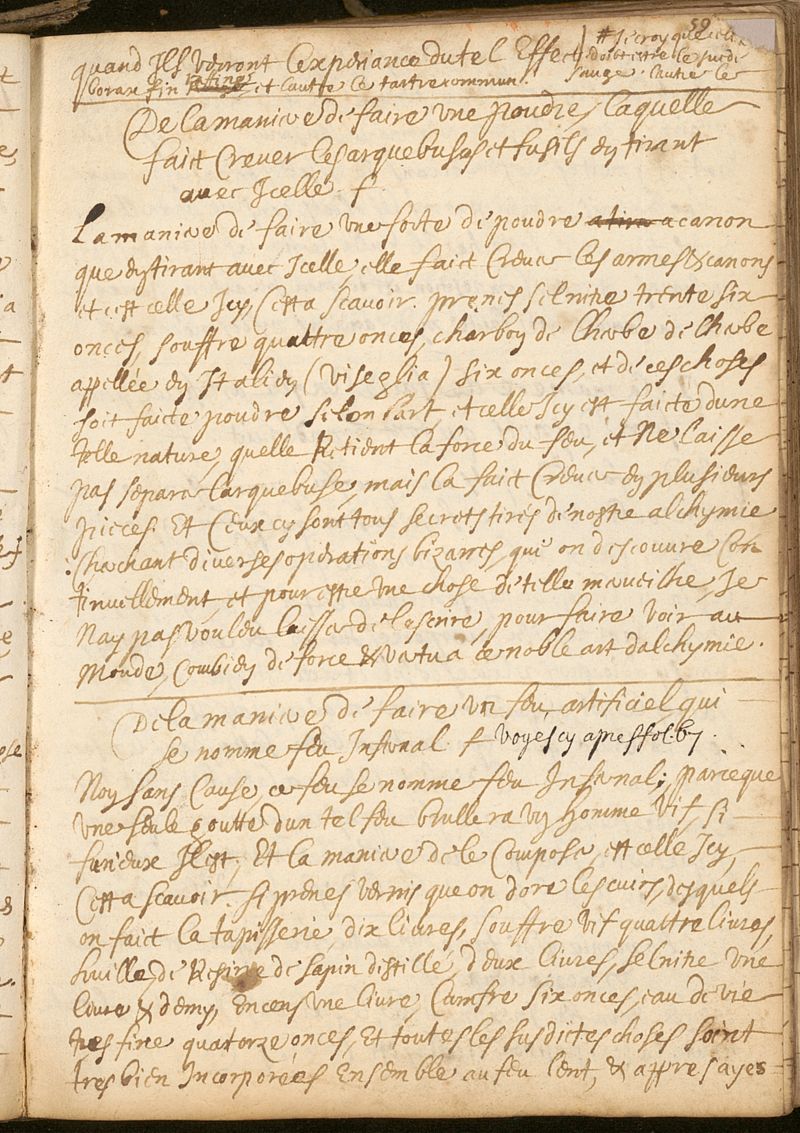 59
quand Ils verront lexperiance du tel Effect / # Je croy que
doibt estre le
borax fin et lautre le tartre commun. sauge. lautre le
De la maniere de faire une poudre, laquelle
faict Crever les arquebuses et fusils en tirant
avec Icelle. f
La maniere de faire une sorte de poudre a tirer a canon
que en tirant avec Icelle, elle faict Crever les armes & canons
et est celle Icy, Cest a scavoir. prenes selnitre trente six
onces, souffre quattre onces, charbon de lherbe de lherbe
appellée en Italien (viseglia) six onces, et de ces choses
soit faicte poudre selon lart, et celle Icy est faicte dune
telle nature, quelle Retient la force du feu, et Ne laisse
pas separer larquebuse, mais la faict Crever en plusieurs
pieces. Et Ceux cy sont tous secrets tires de nostre alchymie
Chachant diverses operations bizarres, qui on descouvre Con
tinuellement, et pour estre une chose de telle merveilhe, Je
Nay pas voulu laisser de lescrire, pour faire voir au
Monde, Combien de force & vertu a ce noble art dalchymie.
De la maniere de faire un feu artificiel qui
se nomme feu Infernal. f voyes cy apres fol. 67.
Non sans Cause, ce feu se nomme feu Infernal; parceque
une seule goutte dun tel feu brullera un Homme vif, si
furieux Il est, Et la maniere de le Composer, est celle Icy,
Cest a scavoir. # prenes vernis que on dore les cuirs, desquels
on faict la tapisserie, dix livres, souffre vif quattre livres,
huille, de Resine de sapin distillé, deux livres, selnitre une
livre & demy, Encens une livre, Camfre six onces, eau de vie
tres fine quatorze onces, Et toutes les susdictes choses soint
tres bien Incorporées Ensemble au feu lent, & appres ayes